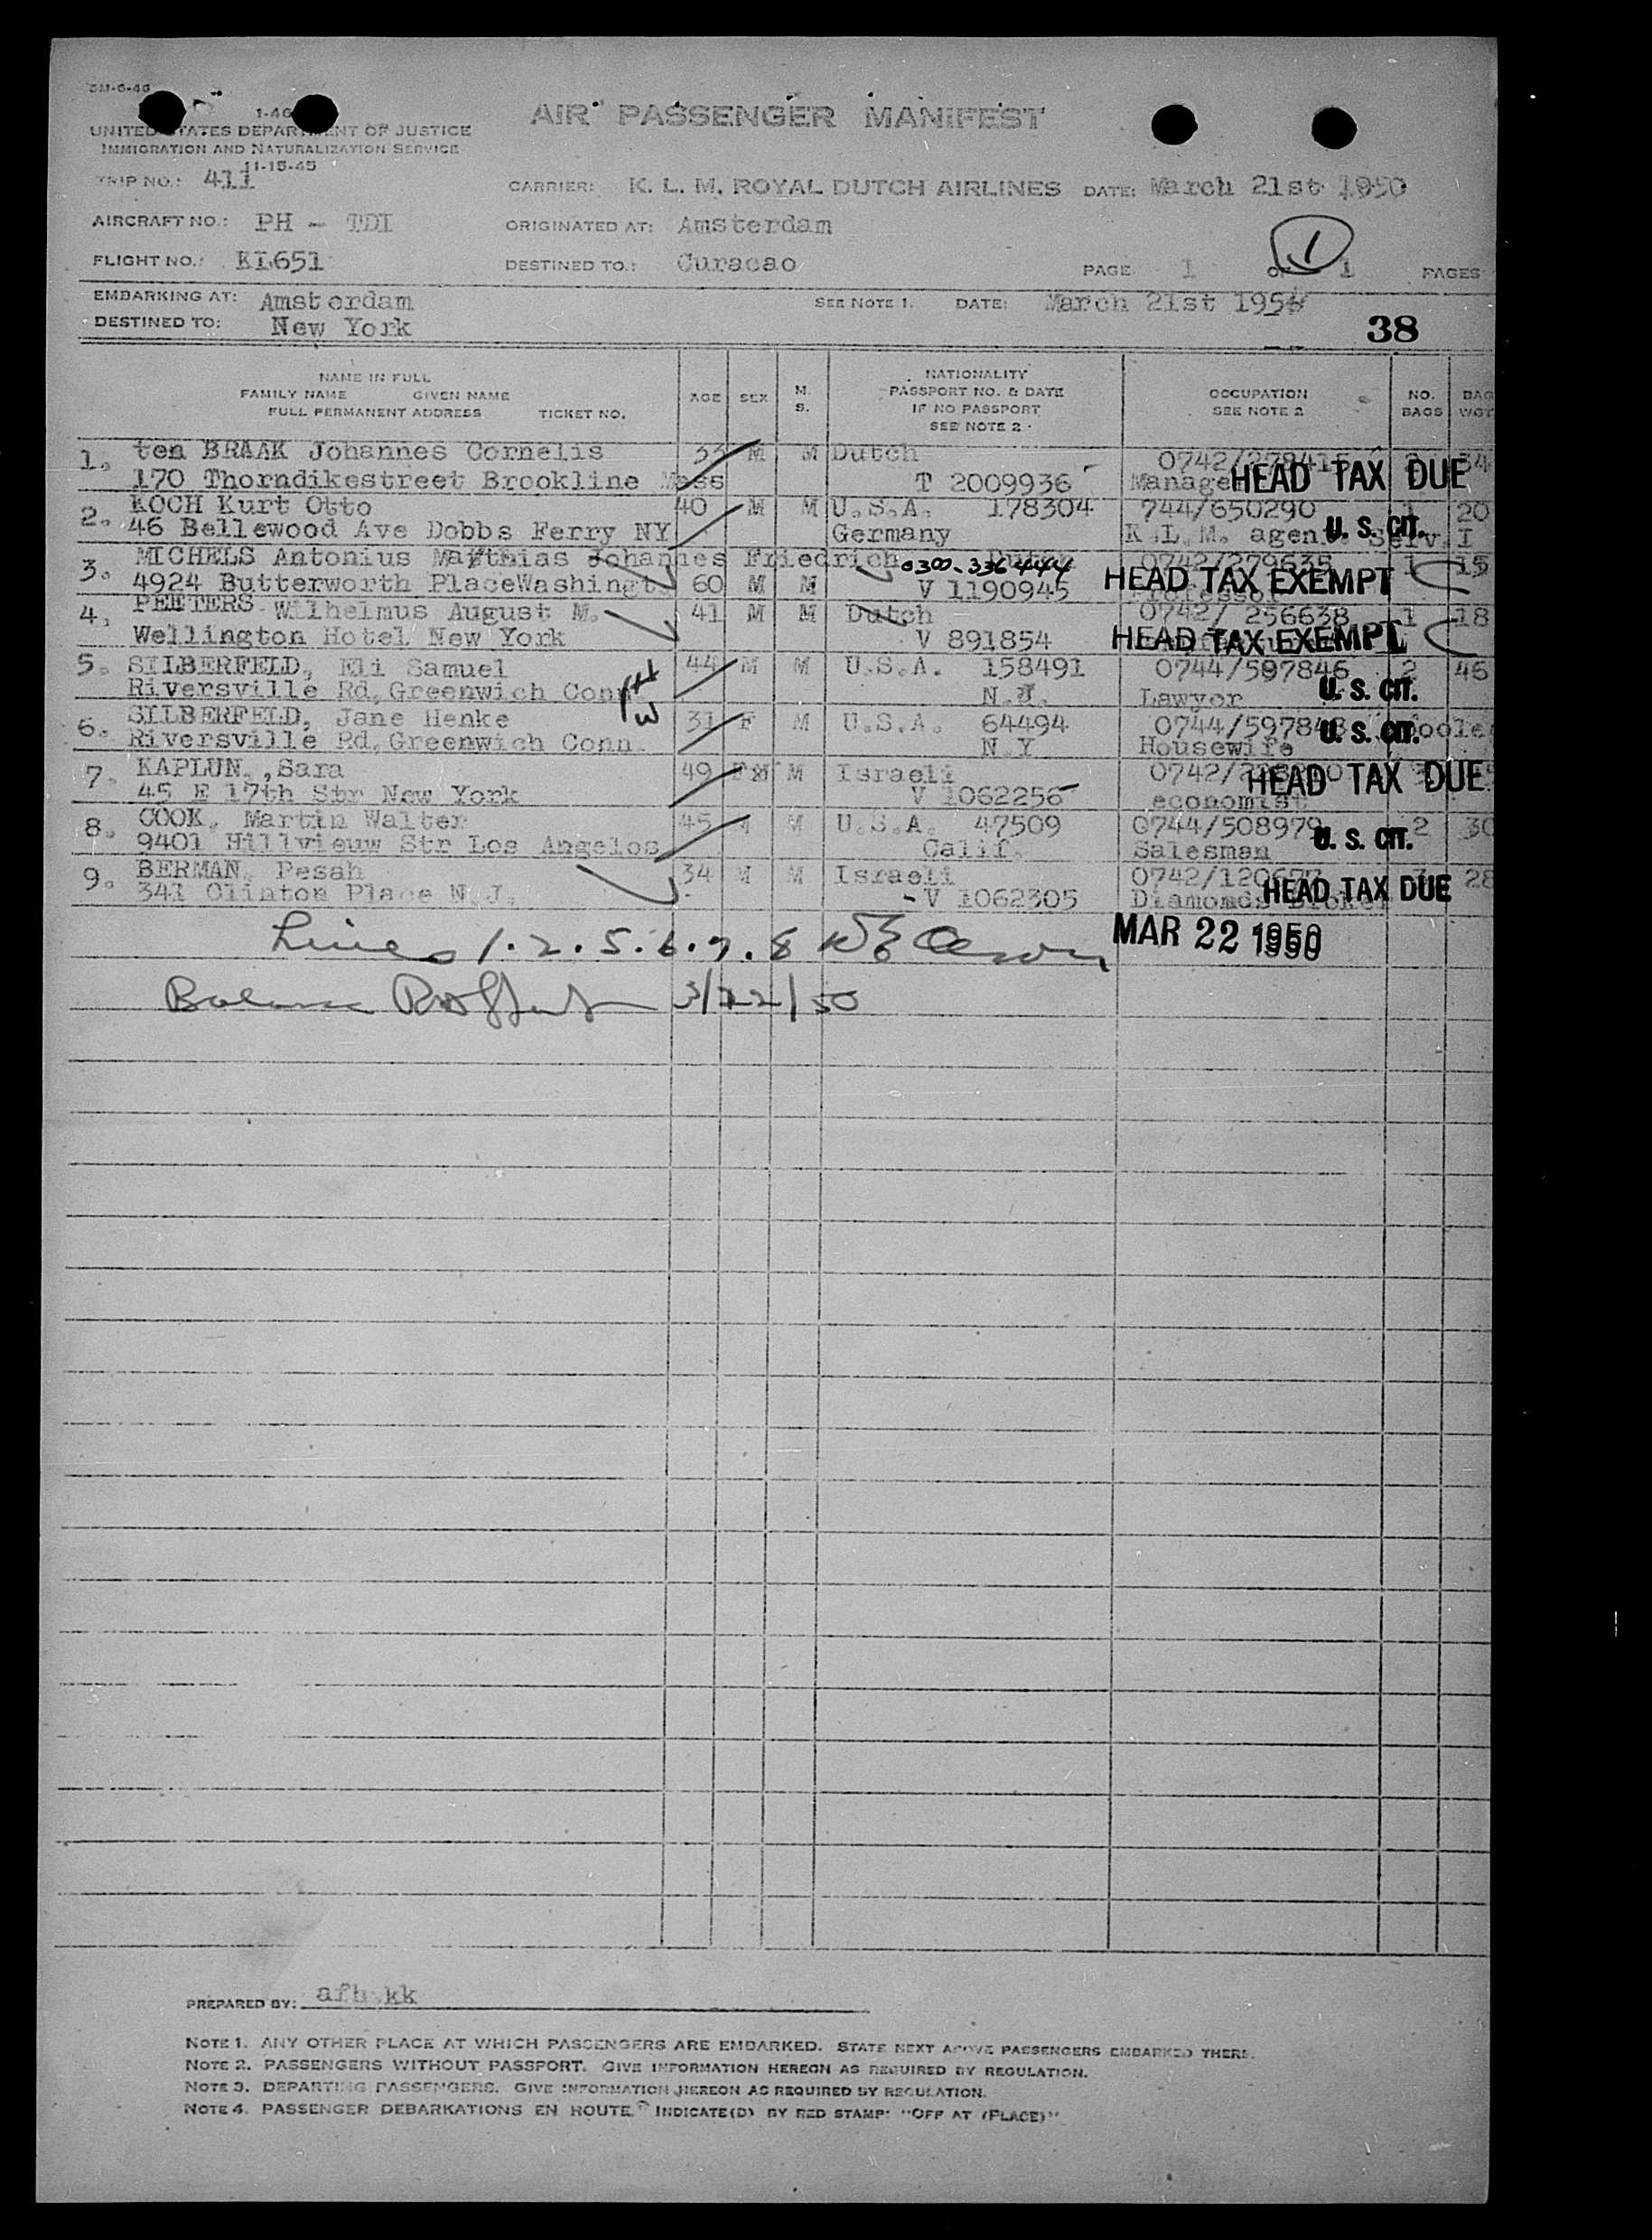 1-46
UNITED STATES DEPARTMENT OF JUSTICE
IMMIGRATION AND NATURALIZATION SERVICE
11-15-45
AIR PASSENGER MANIFEST
TRIP NO.: 411
CARRIER: K. L. M. ROYAL DUTCH AIRLINES DATE: March 21st 1950
AIRCRAFT NO.: PH - TDI
ORIGINATED AT: Amsterdam
FLIGHT NO.: KL651
DESTINED TO.: Curacao
PAGE 1 OF 1 PAGES
1
EMBARKING AT: Amsterdam
SEE NOTE 1. DATE: March 21st 1950
DESTINED TO: New York
38
NAME IN FULL
FAMILY NAME GIVEN NAME
FULL PERMANENT ADDRESS TICKET NO.
AGE SEX M. S.
NATIONALITY
PASSPORT NO. & DATE
IF NO PASSPORT
SEE NOTE 2
OCCUPATION
SEE NOTE 2
NO. BAGS
BAG WGT
1. ten BRAAK Johannes Cornelis 33 M M Dutch 34
170 Thorndikestreet Brookline Mass T 2009936 HEAD TAX DUE
2. KOCH Kurt Otto 40 M M U.S.A. 178304 744/650290 1 20
46 Bellewood Ave Dobbs Ferry NY Germany K.L.M. agent Serv. I U. S. CIT.
3. MICHELS Antonius Matthias Johannes Friedrich Dutch 0300-336444 0742/279635 1 15
4924 Butterworth PlaceWashingt 60 M M V 1190945 Professor HEAD TAX EXEMPT
4. PEETERS Wilhelmus August M. 41 M M Dutch 0742/ 256638 1 18
Wellington Hotel New York V 891854 HEAD TAX EXEMPT
5. SILBERFELD, Eli Samuel 44 M M U.S.A. 158491 0744/597846 2 46
Riversville Rd, Greenwich Conn N.J. Lawyer U. S. CIT.
6. SILBERFELD, Jane Henke 31 F M U.S.A. 64494 0744/597848 U. S. CIT.
Riversville Rd, Greenwich Conn. N.Y Housewife
7. KAPLUN, Sara 49 F M Israeli HEAD TAX DUE
45 E 17th Str New York V 1062256 economist
8. COOK, Martin Walter 45 M M U.S.A. 47509 0744/508979 2 30
9401 Hillvieuw Str Los Angelos Calif. Salesman U. S. CIT.
9. BERMAN, Pesah 34 M M Israeli 28
341 Clinton Place N.J. V 1062305 Diamonds HEAD TAX DUE
Lines 1. 2. 5. 6. 7. 8
MAR 22 1950
Balance 3/22/50
PREPARED BY: afh kk
NOTE 1. ANY OTHER PLACE AT WHICH PASSENGERS ARE EMBARKED. STATE NEXT ABOVE PASSENGERS EMBARKED THERE.
NOTE 2. PASSENGERS WITHOUT PASSPORT. GIVE INFORMATION HEREON AS REQUIRED BY REGULATION.
NOTE 3. DEPARTING PASSENGERS. GIVE INFORMATION HEREON AS REQUIRED BY REGULATION.
NOTE 4. PASSENGER DEBARKATIONS EN ROUTE INDICATE(D) BY RED STAMP: "OFF AT (PLACE)"